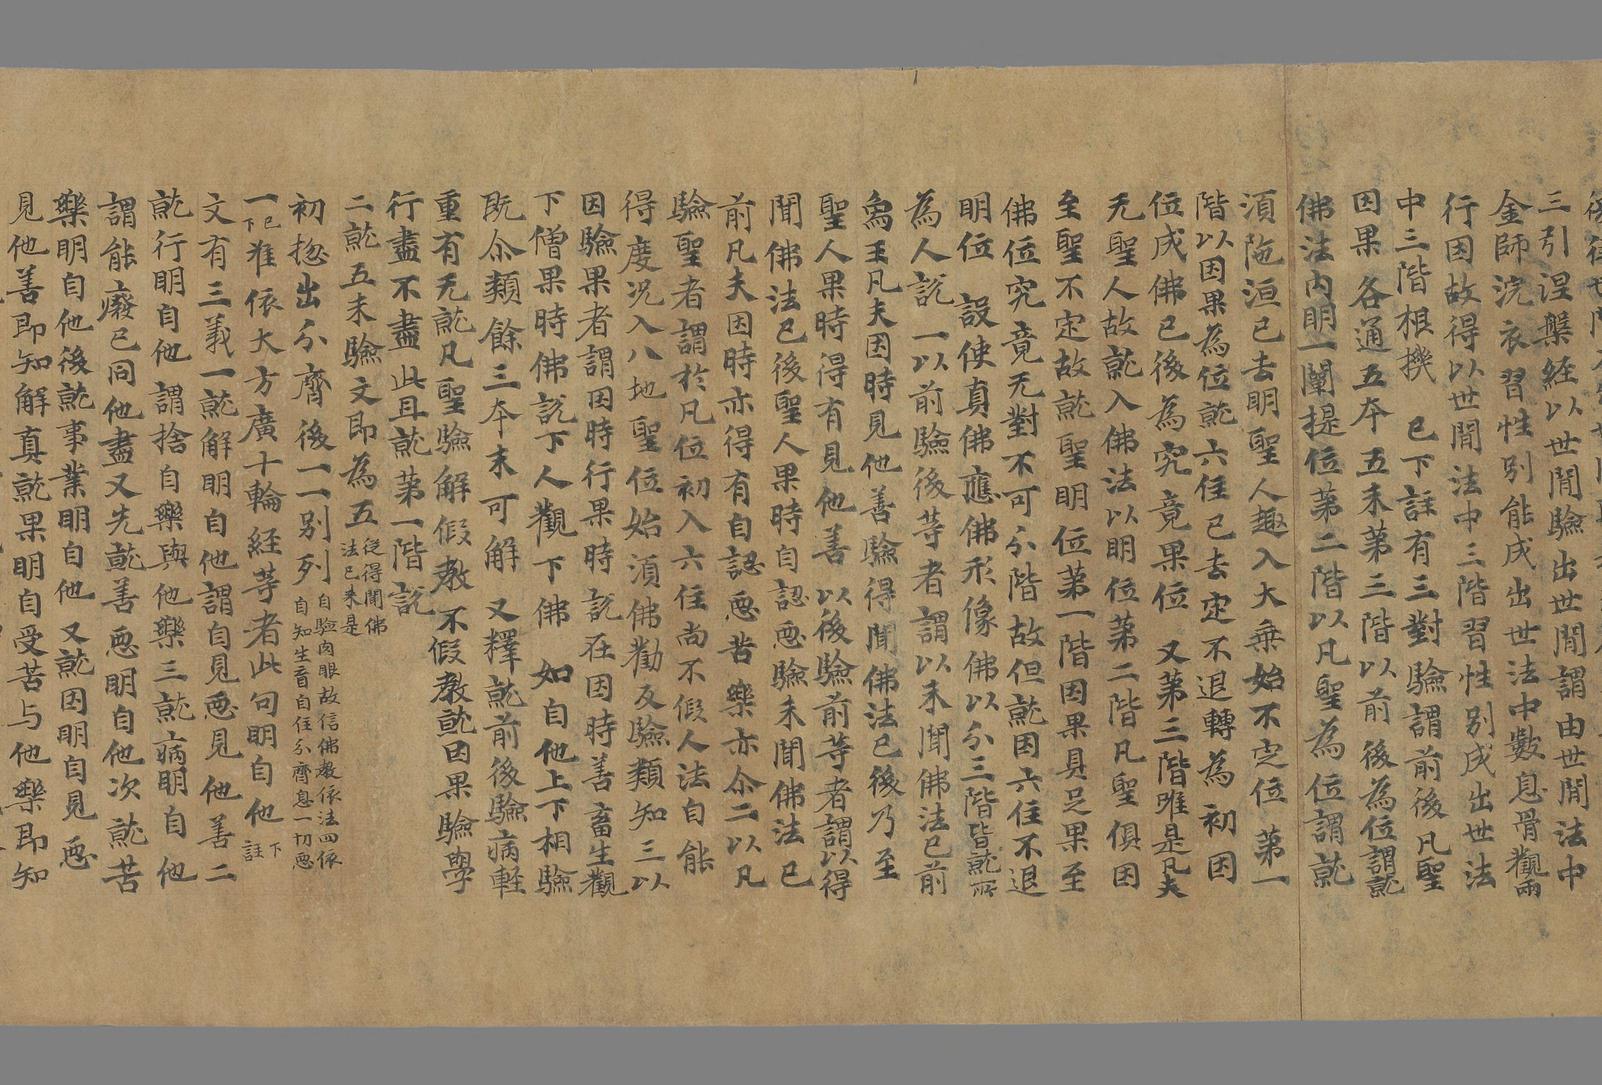 三引涅槃經以世間驗出世間謂由世間法中
金師浣衣習性別能成出世法中數息骨觀兩
行因故得以世間法中三階習性別成出世法
中三階根機 已下註有三對驗謂前後凡聖
因果各通五夲五未第三階以前後為位謂就
佛法内明一闡提位第二階以凡聖為位謂就
湏陁洹已去明聖人趣入大乗始不定位第一
階以因果為位就六住已去定不退轉為初因
位成佛已後為究竟果位 又第三階唯是凡夫
无聖人故就入佛法以明位第二階凡聖俱因
至聖不定故就聖明位第一階因果具足果至
佛位究竟无對不可分階故但就因六住不退
明位 設使真佛應佛形像佛以分三階皆就所
為人說 一以前驗後等者謂以未聞佛法已前
為王凡夫因時見他善驗得聞佛法已後乃至
聖人果時得有見他善 以後驗前等者謂以得
聞佛法已後聖人果時自認惡驗未聞佛法已
前凡夫因時亦得有自認惡苦樂亦尒二以凡
驗聖者謂於凡位初入六住尚不假人法自能
得度况入八地聖位始湏佛勸及驗類知三以
因驗果者謂因時行果時說在因時善畜生觀
下僧果時佛說下人觀下佛 如自他上下相驗
既尒類餘三夲末可解 又釋就前後驗病軽
重有无就凡聖驗解假教不假教就因果驗學
行盡不盡 此且就第一階說
二就五未驗文即為五從得聞佛法已来是
初惣出分齊後一一別列自驗肉眼故信佛教依法四依自知生盲自住分齊息一切惡
一已下准依大方廣十輪經等者此句明自他下註
文有三義一就解明自他謂自見惡見他善二
就行明自他謂捨自樂與他樂三就病明自他
謂能癈已同他盡又先就善惡明自他次就苦
樂明自他後就事業明自他 又就因明自見惡
見他善即知解真就果明自受苦与他樂即知